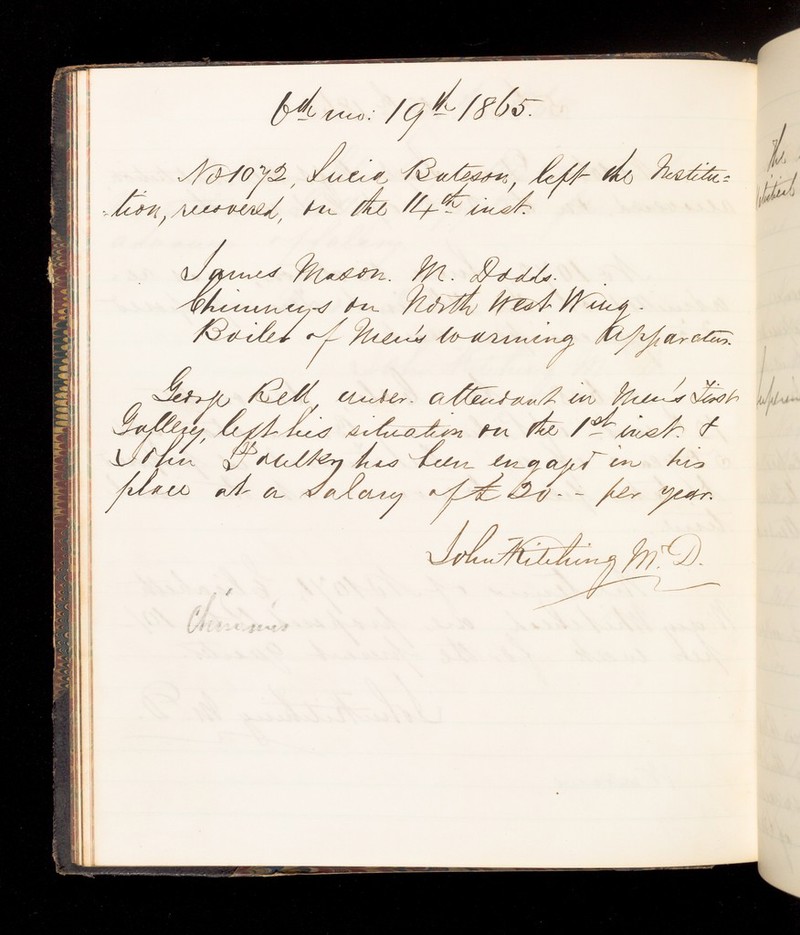 6th mo: 19th 1865.
No 1072, Lucia Bateson, left the Institu=
=tion, recovered, on the 14th inst.
James Mason. M. Dodds.
Chimneys on North West Wing.
Boiler of Men's warming Apparatus.
George Bell, under. attendant in Men's First
Gallery, left his situation on the 1st inst. &
John Foulkey has been engaged in his
place at a Salary of £20. - per year.
John Kitching M.D.
Chimneys
the